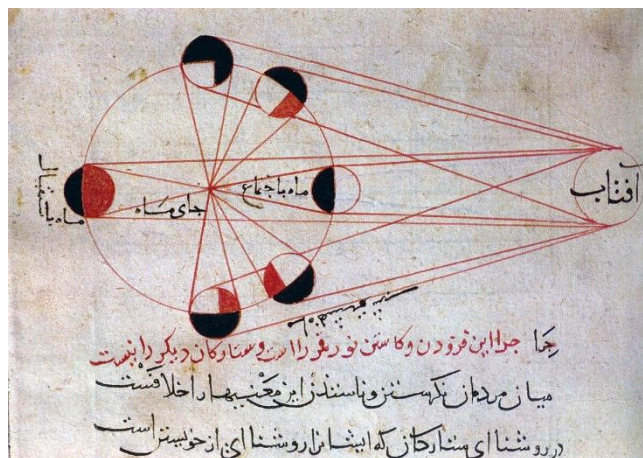 آفتاب
ماه باجتماع
جای ماه
ماه باستقبال
چرا چرا این فزودن و کاستن نور قمر را است و ستارکان دیکر را نیست
میان مردمان نکرستن و ناسندن این معنیها را خلافست
در روشنا ای ستارکان که ایشانرا روشنا ای از خویشتن است